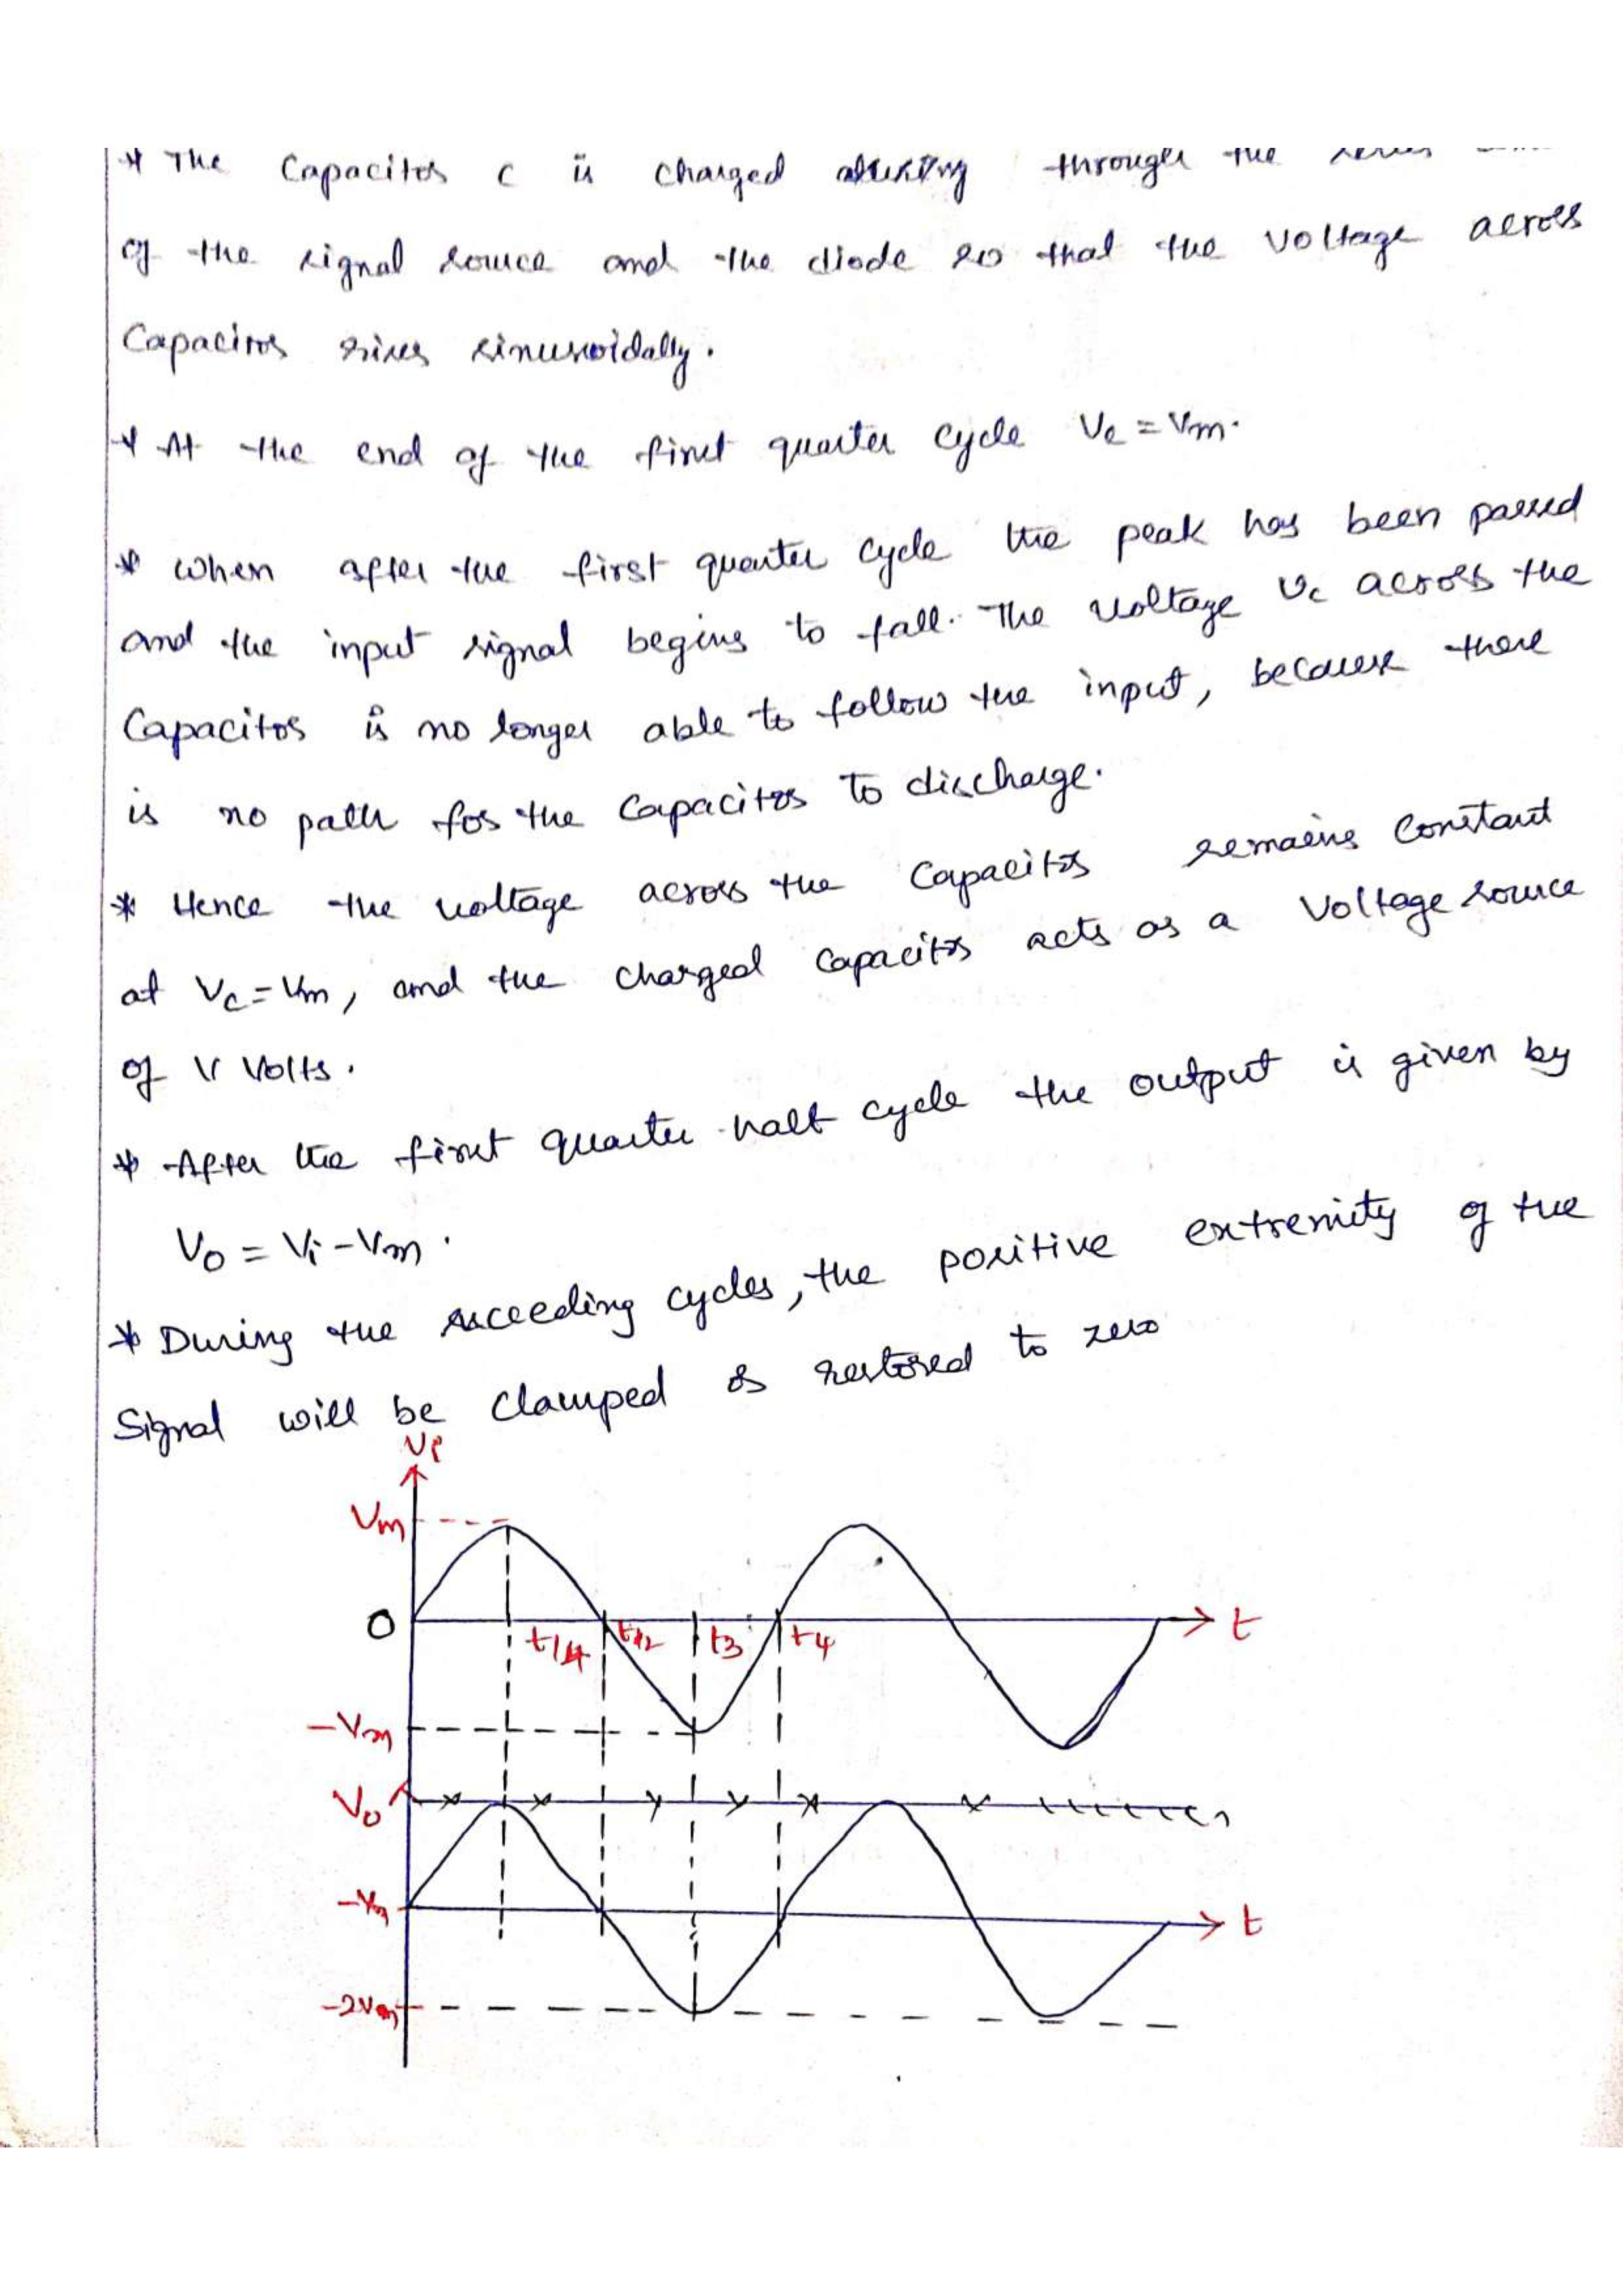 * The Capacitor c is charged through the series
of the signal source and the diode so that the voltage across
Capacitor rises sinusoidally.
* At the end of the first quarter cycle Vc = Vm.
* When after the first quarter cycle the peak has been passed
and the input signal begins to fall. The voltage Vc across the
Capacitor is no longer able to follow the input, because there
is no path for the Capacitor to discharge.
* Hence the voltage across the Capacitor remains Constant
at Vc = Vm, and the charged capacitor acts as a Voltage source
of V Volts.
* After the first quarter half cycle the output is given by
Vo = Vi - Vm.
* During the succeeding cycles, the positive extremity of the
Signal will be Clamped or restored to zero
Vi
Vm
0
t/4 t/2 t3 t4 t
-Vm
Vo
-Vm
t
-2Vm